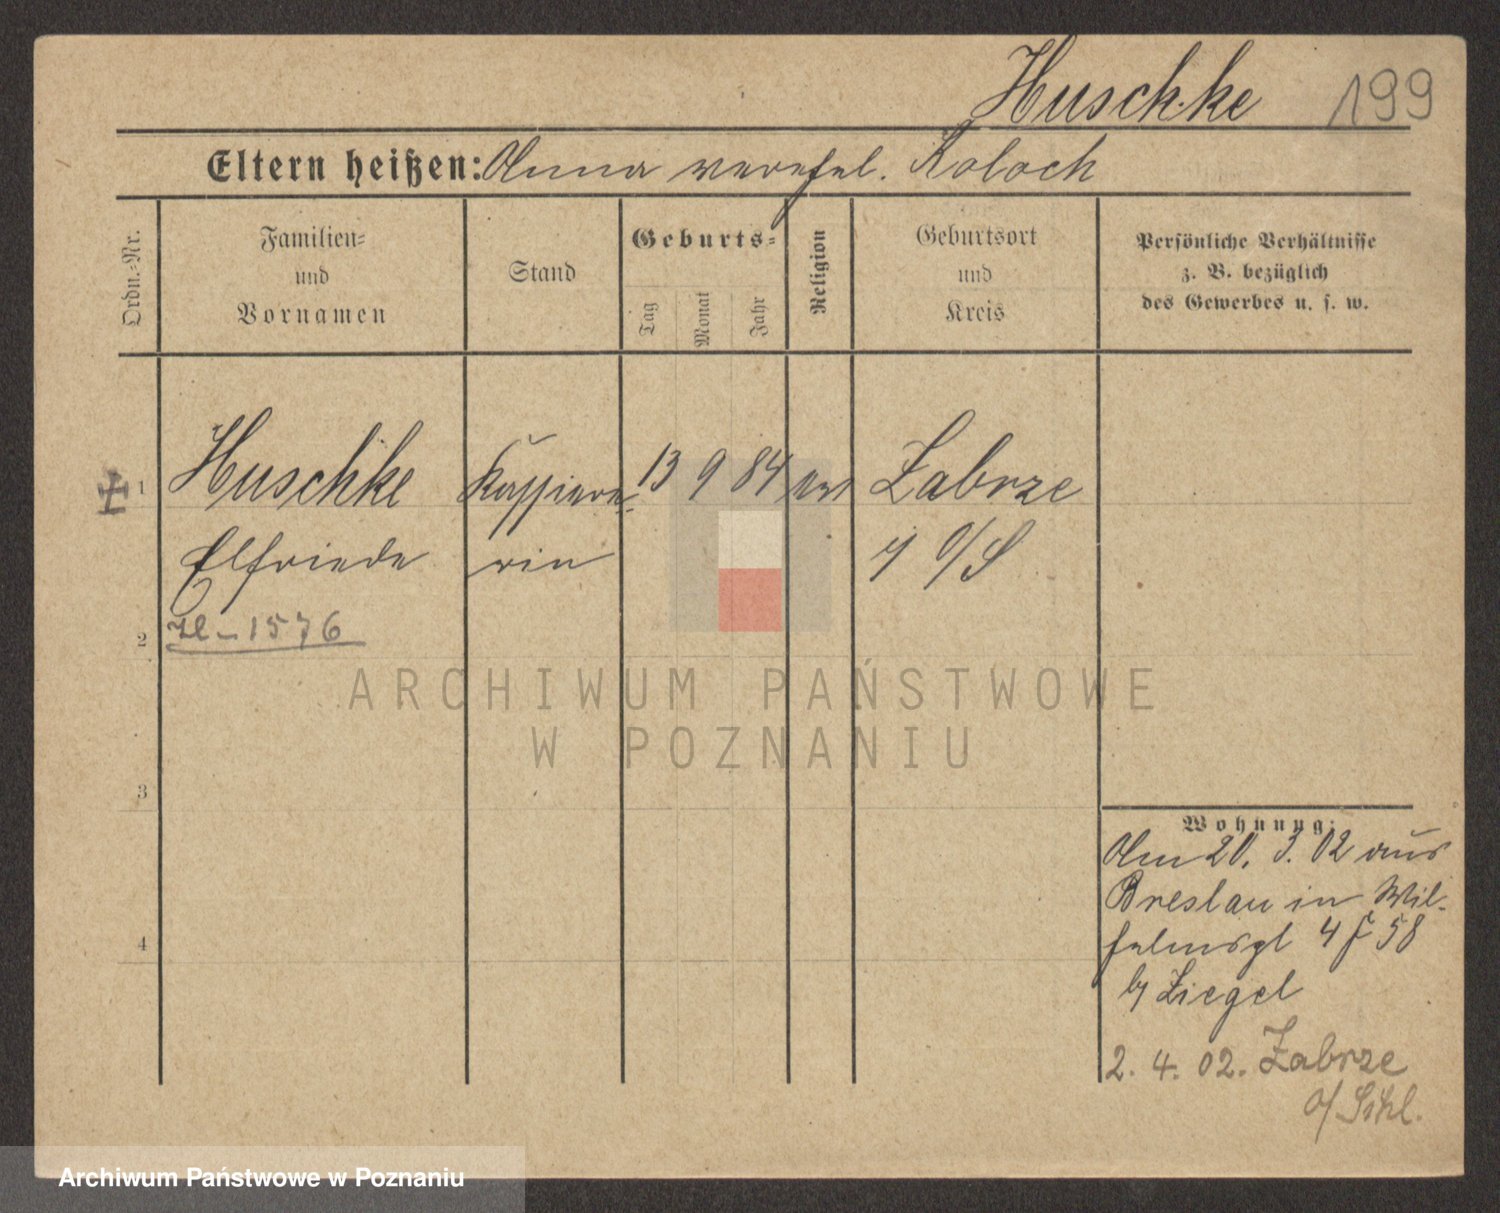 Huschke 199
Eltern heißen: Anna verehel. Koloch
Ordn.-Nr.
Familien-
und
Vornamen
Stand
Geburts-
Tag
Monat
Jahr
Religion
Geburtsort
und
Kreis
Persönliche Verhältnisse
z. B. bezüglich
des Gewerbes u. s. w.
1 Huschke 13 9 84 Zabrze
Elfriede rin O/S
1576
2
3
4
Wohnung:
Am 20. 3. 02 aus
Breslau in Wil-
helmspl 4
b/ Ziegel
2. 4. 02. Zabrze
o/ Schl.
ARCHIWUM PAŃSTWOWE
W POZNANIU
Archiwum Państwowe w Poznaniu